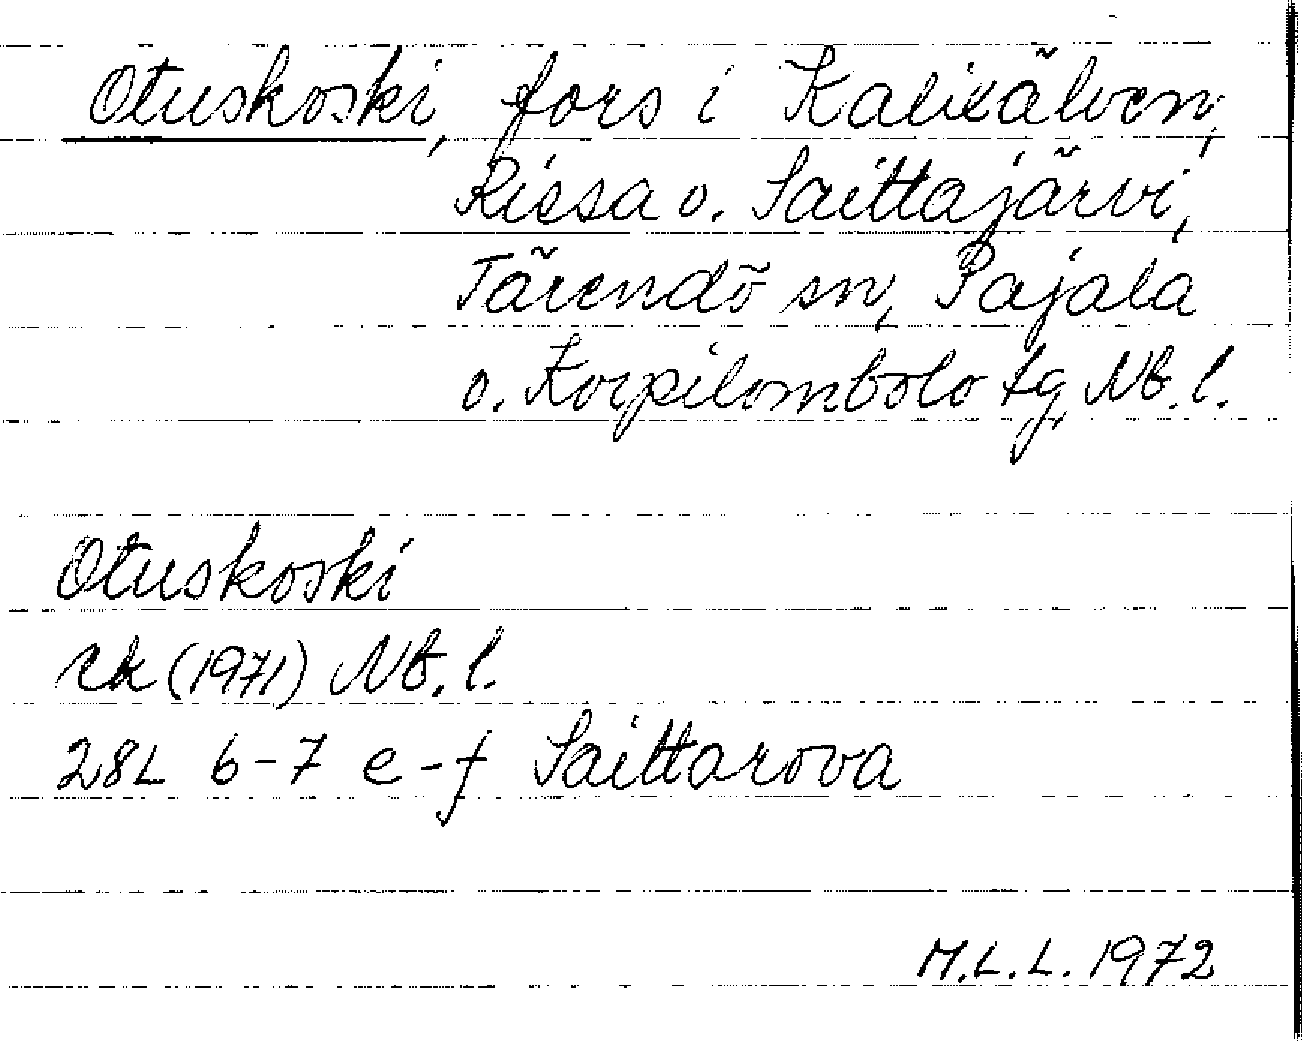 Otuskoski, fors i Kalixälven,
Rissa o. Saittajärvi,
Tärendö sn, Pajala
o. Korpilombolo tg, Nb. l.
Otuskoski
rk (1971) Nb. l.
28L 6-7 e-f Saittarova
M.L.L. 1972